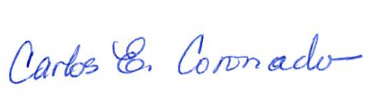 Carlos E. Coronado